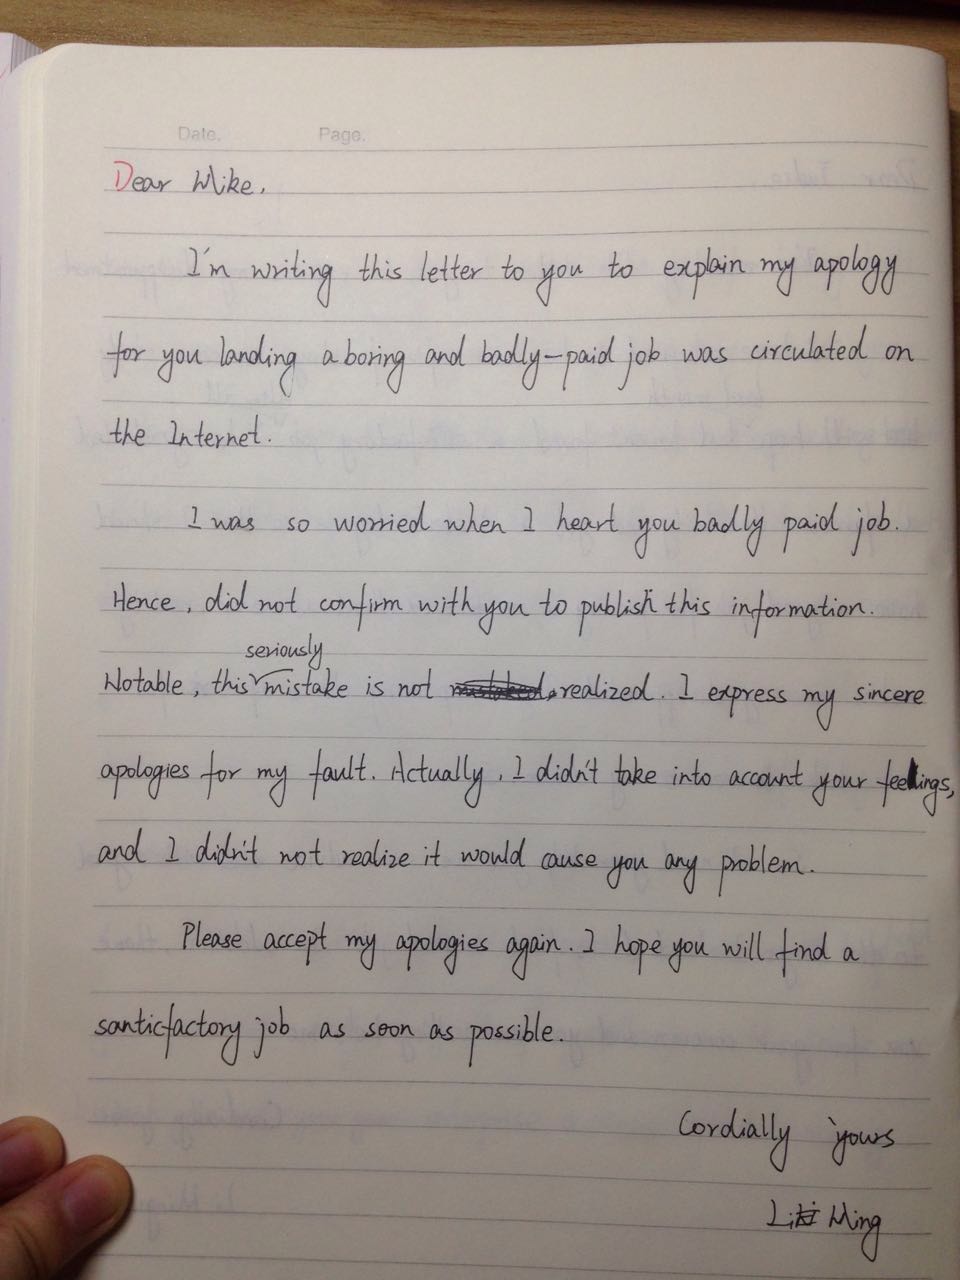 Date. Page.
Dear Mike,
I'm writing this letter to you to explain my apology
for you landing a boring and badly-paid job was circulated on
the Internet.
I was so worried when I heart you badly paid job.
Hence, did not confirm with you to publish this information.
seriously
Notable, this mistake is not realized. I express my sincere
apologies for my fault. Actually, I didn't take into account your feelings,
and I didn't not realize it would cause you any problem.
Please accept my apologies again. I hope you will find a
santicfactory job as soon as possible.
Cordially yours
Li Ming